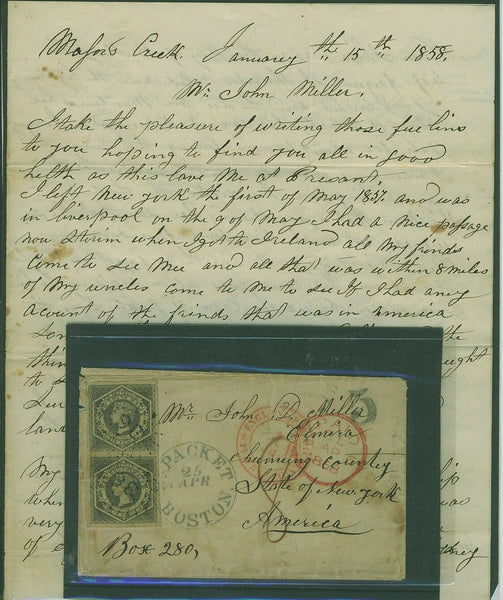 Majors Creek. Januarey th 15th 1858.
Mr. John Miller.
I take the pleasure of writing those few lins
to you hoping to find you all in good
helth as this lave Me at Presant.
I left New york the first of May 1857 and was
in liverpool on the 9 of May I had a nice passage
now storim when I got to Ireland all my frinds
Come to see Mee and all that was within 8 miles
of My uncles come to me to see if I had aney
acount of the frinds that was in america
the
thin ought
to s
Sur
land
My ip
when was
very
of e they
Mr John D. Miller
Elmira
Chumung County
State of New york
America
Box 280,
PACKET
25
APR
BOSTON
PAID
AP